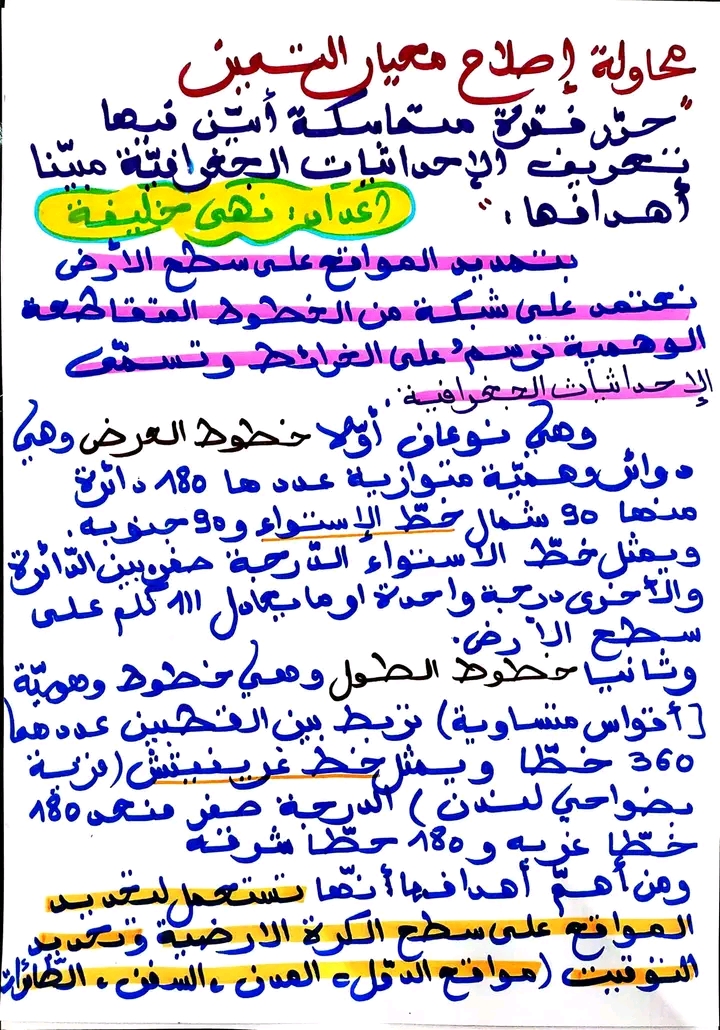 محاولة إصلاح معيار التميز
"حرّر فقرة متماسكة أبيّن فيها
تعريف الإحداثيات الجغرافيّة مبيّنا
أهدافها."
اعداد: نهى خليفة
بتحديد المواقع على سطح الأرض
نعتمد على شبكة من الخطوط المتقاطعة
الوهمية ترسم على الخرائط وتسمّى
الإحداثيات الجغرافية.
وهي نوعان أوّلا خطوط العرض وهي
دوائر وهميّة متوازية عددها 180 دائرة
منها 90 شمال خطّ الإستواء و90 جنوبه
ويمثل خطّ الاستواء الدّرجة صفر بين الدّائرة
والأخرى درجة واحدة او ما يعادل 111 كلم على
سطح الأرض.
وثانيا خطوط الطول وهي خطوط وهميّة
[أقواس متساوية) تربط بين القطبين عددها
360 خطّا ويمثل خط غرينيتش (قرية
بضواحي لندن) الدرجة صفر منها 180
خطّا غربه و180 خطّا شرقه
ومن أهمّ أهدافها أنّها تستعمل لتحديد
المواقع على سطح الكرة الارضية وتحديد
التوقيت (مواقع الدّول، المدن، السفن، الطّائرات